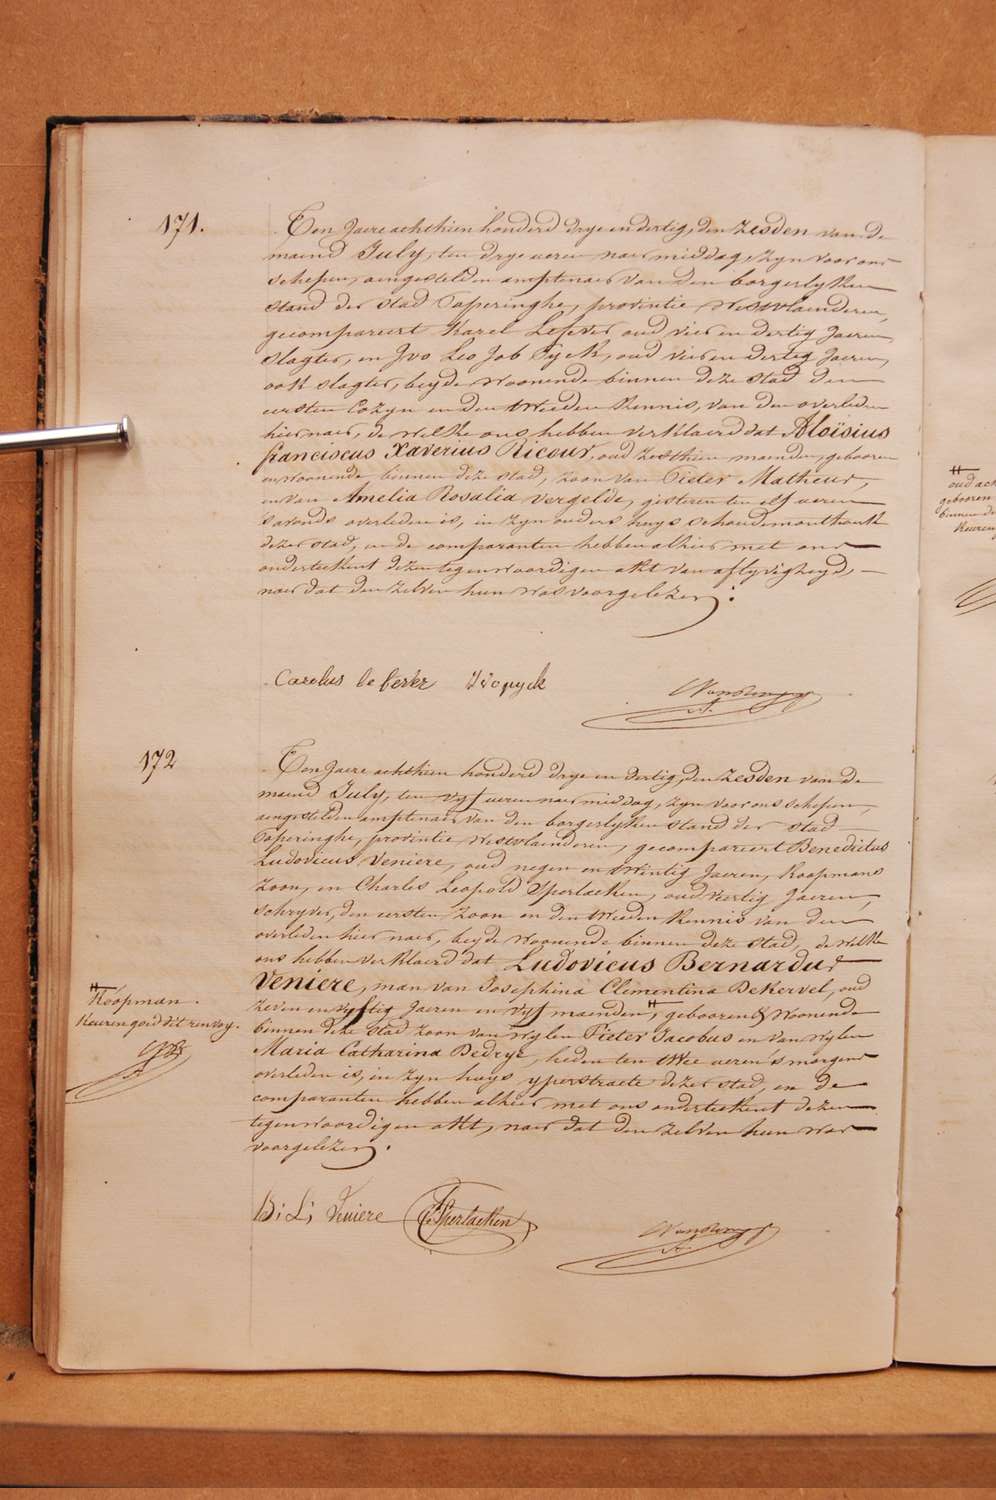 171.
Ten Jaere achthien honderd drye en dertig, den zesden van de
maend July, ten drye ueren naer middag, zyn voor ons
schepen, aengestelden amptenaer van den borgerlyken
stand der stad Poperinghe, provintie Westvlaenderen,
gecompareert Karel Lefever, oud vier en dertig Jaeren,
slagter, en Ivo Leo Job Pyck, oud vier en dertig Jaeren,
ook slagter, beyde woonende binnen deze stad den
eersten Cozyn en den tweeden Kennis, van den overleden
hier naer, de welke ons hebben verklaerd dat Aloïsius
franciscus Xaverius Ricour, oud zesthien maenden, gebooren
en woonende binnen deze stad, zoon van Pieter Matheus,
en van Amelia Rosalia Vergelde, gisteren ten elf ueren
s'avonds overleden is, in zyn ouders huys schoudemonthouk
dezer stad, en de comparanten hebben alhier met ons
onderteekent dezen tegenwoordigen akt van aflyvigheyd,
naer dat den zelven hun was voorgelezen.
Carolus le fever Ivo pyck
172
Ten Jaere achthien honderd drye en dertig, den zesden van de
maend July, ten vyf ueren naer middag, zyn voor ons schepen,
aengestelden amptenaer van den borgerlyken stand der stad
Poperinghe, provintie Westvlaenderen, gecompareert Benedictus
Ludovicus Veniere, oud negen en twintig Jaeren, Koopmans
zoon, en Charles Leopold Sperlaeken, oud veertig Jaeren,
schryver, den eersten zoon en den tweeden Kennis van den
overleden hier naer, beyde woonende binnen deze stad, de welke
ons hebben verklaerd dat Ludovicus Bernardus
Veniere, man van Josephina Clementina DeKervel, oud
zeven en vyftig Jaeren en vyf maenden, # gebooren & woonende
binnen deze stad zoon van wylen Pieter Jacobus en van wylen
Maria Catharina Bedryt, heden ten twee ueren s'morgens
overleden is, in zyn huys yperstraete dezer stad, en de
comparanten hebben alhier met ons onderteekent dezen
tegenwoordigen akt, naer dat den zelven hun was
voorgelezen.
#
Koopman.
Keuren goed dit renvoy.
B: L: Veniere C L Sperlaeken
#
oud ach
gebooren
binnen de
Keuren